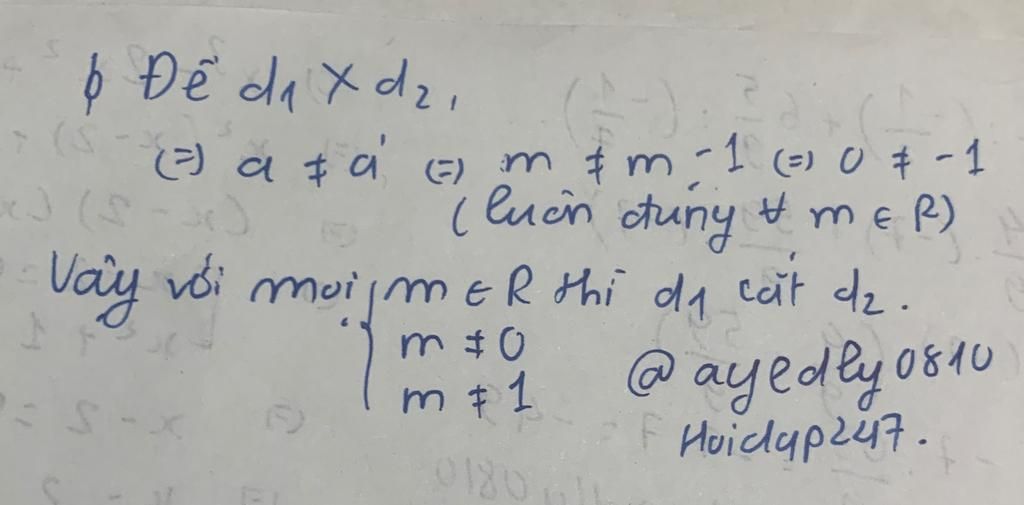 b Để d1 X d2,
(=) a ≠ a' (=) m ≠ m - 1 (=) 0 ≠ -1
(luôn đúng ∀ m ∈ R)
Vậy với mọi { m ∈ R thì d1 cắt d2.
m ≠ 0
m ≠ 1 @ayedly0810
Hoidap247.